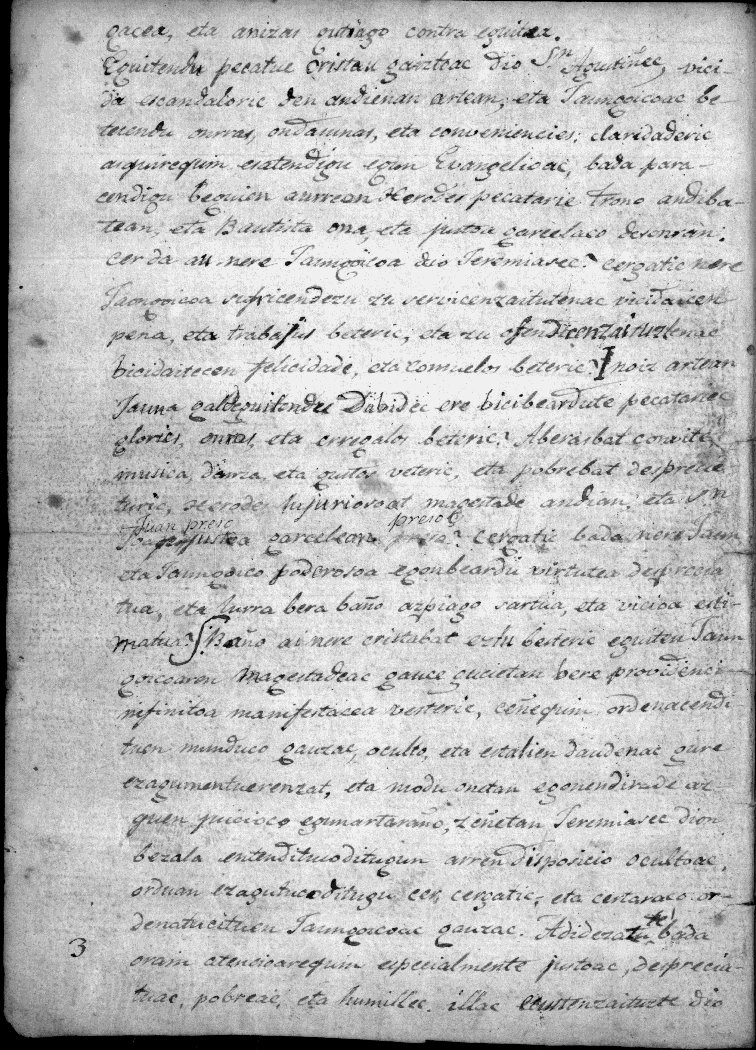 gacea, eta anizas gutiago contra eguitea.
Eguitendu pecatue cristau gaiztoac dio Sn Agustiñec, vici-
da escandaloric den andienan artean, eta Jaungoicoac be-
tetendu onrras, ondasunas, eta conveniencies: claridaderic
asquirequin esatendigu egun Evangelioac, bada para-
cendigu beguien aurrean Herodes pecatarie trono andiba-
tean, eta Bautista ona, eta justoa garcelaco desonran.
Cer da au nere Jaungoicoa dio Jeremiasec? cergatic nere
Jaongoicoa sufricendezu zu servicenzaitutenac vicidaicen
pena, eta trabajus beteric, eta zu ofendicenzaituztenac
bicidaitecen felicidade, eta consuelos beteric? Inoiz artean
Jauna galdeguitendu Davidec ere bicibeardute pecatariec
glories, onrras, eta erregalos beteric? Aberasbat convite,
musica, danza, eta gustos veteric, eta pobrebat desprecia-
turic, Herodes lujuriosoat magestade andian, eta Sn
Juan preso preso
justoa garcelean? Cergatic bada nere Jaun
eta Jaungoico poderosoa egonbeardu virtutea desprecia-
tua, eta lurra bera baño azpiago sartua, eta vicioa esti-
matua? Baño ai nere cristabat ezlu besteric eguiten Jaun
goicoaren Magestadeac gauce gucietan bere providenci
infinitoa manifestacea besteric, ceñequin ordenacendi
tuen munduco gauzac, oculto, eta estalien daudenac gure
ezagumentuerenzat, eta modu onetan egonendirade az-
quen juicioco egunartaraño, zeñetan Jeremiasec dion
bezala entendituoditugun arren disposicio ocultoac,
orduan ezagutucoditugu cer, cergatic, eta certaraco or-
denatucituen Jaungoicoac gauzac. Adidezatte bada
orain atencioarequin especialmente justoac, desprecia-
tuac, pobreac, eta humillec. illac dio
3